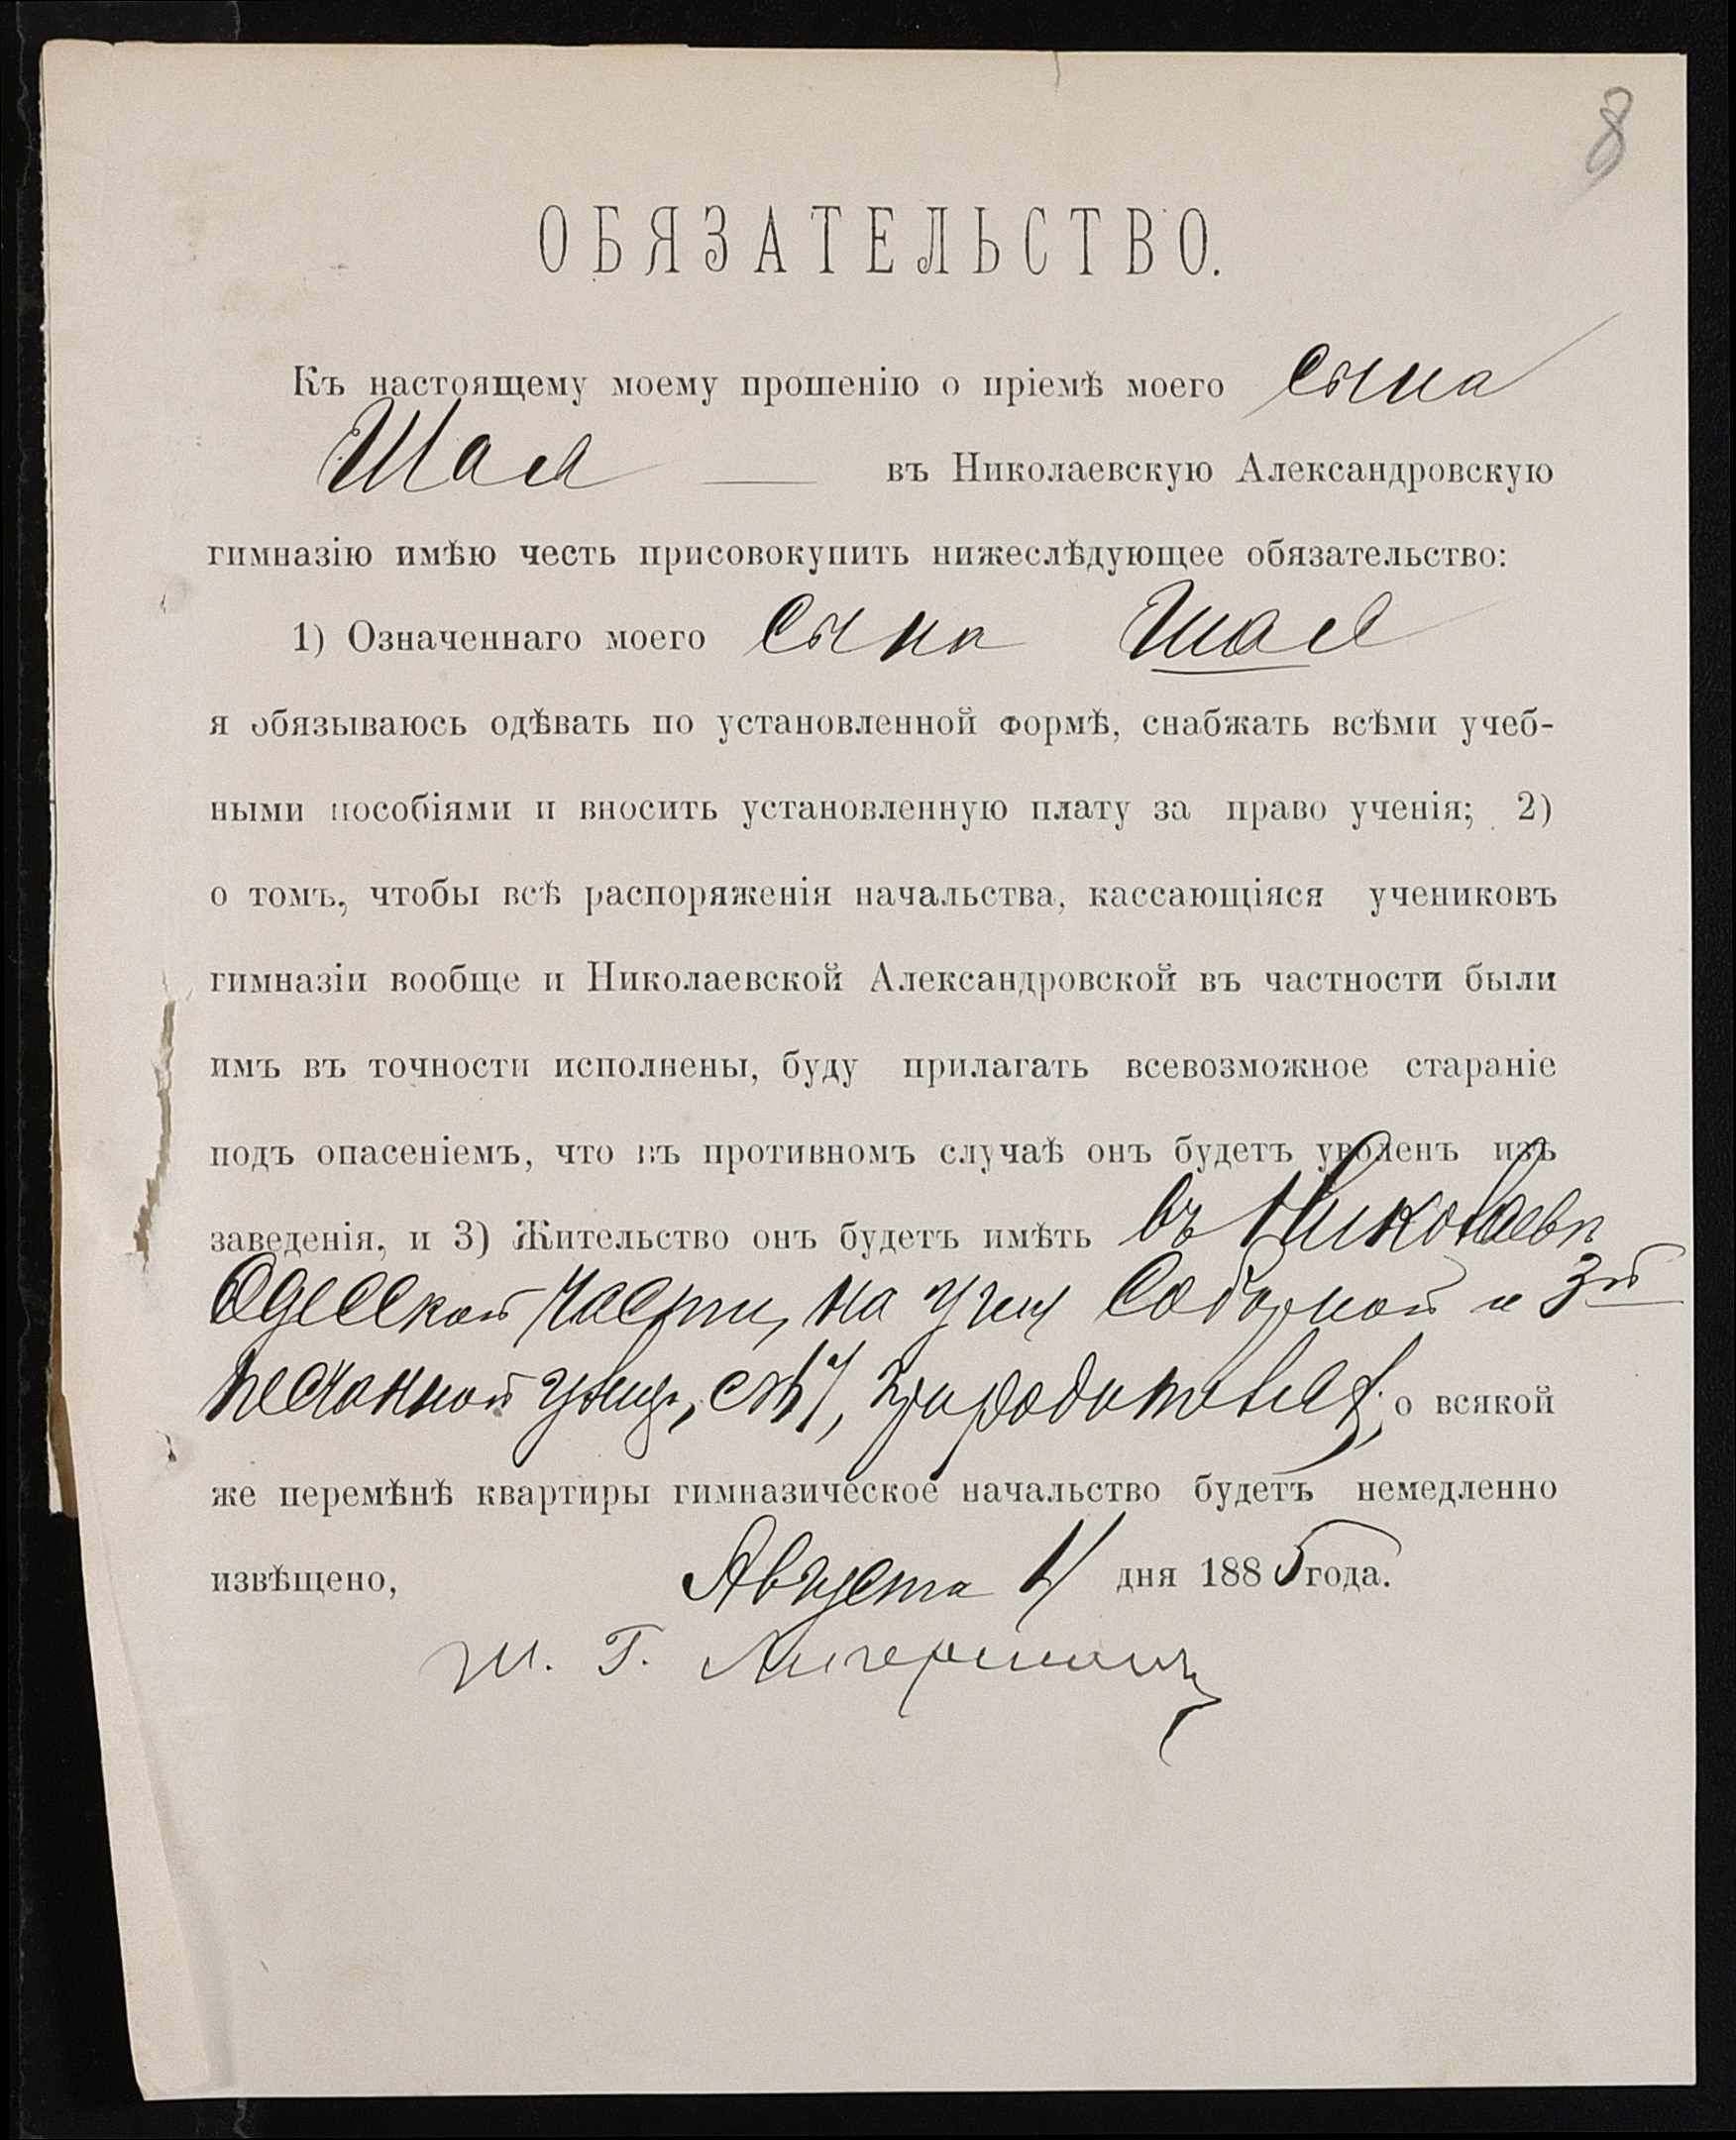 8
ОБЯЗАТЕЛЬСТВО.
Къ настоящему моему прошенію о пріемѣ моего сына
Шая — въ Николаевскую Александровскую
гимназію имѣю честь присовокупить нижеслѣдующее обязательство:
1) Означеннаго моего сына Шая
я обязываюсь одѣвать по установленной формѣ, снабжать всѣми учеб-
ными пособіями и вносить установленную плату за право ученія; 2)
о томъ, чтобы всѣ распоряженія начальства, кассающіяся учениковъ
гимназіи вообще и Николаевской Александровской въ частности были
имъ въ точности исполнены, буду прилагать всевозможное стараніе
подъ опасеніемъ, что въ противномъ случаѣ онъ будетъ уволенъ изъ
заведенія, и 3) Жительство онъ будетъ имѣть въ Николаевѣ
Одесской части, на Соборной и 3й
песчанной улицѣ, при родителяхъ; о всякой
же перемѣнѣ квартиры гимназическое начальство будетъ немедленно
извѣщено, Августа 4 дня 1885 года.
Ш. Г.